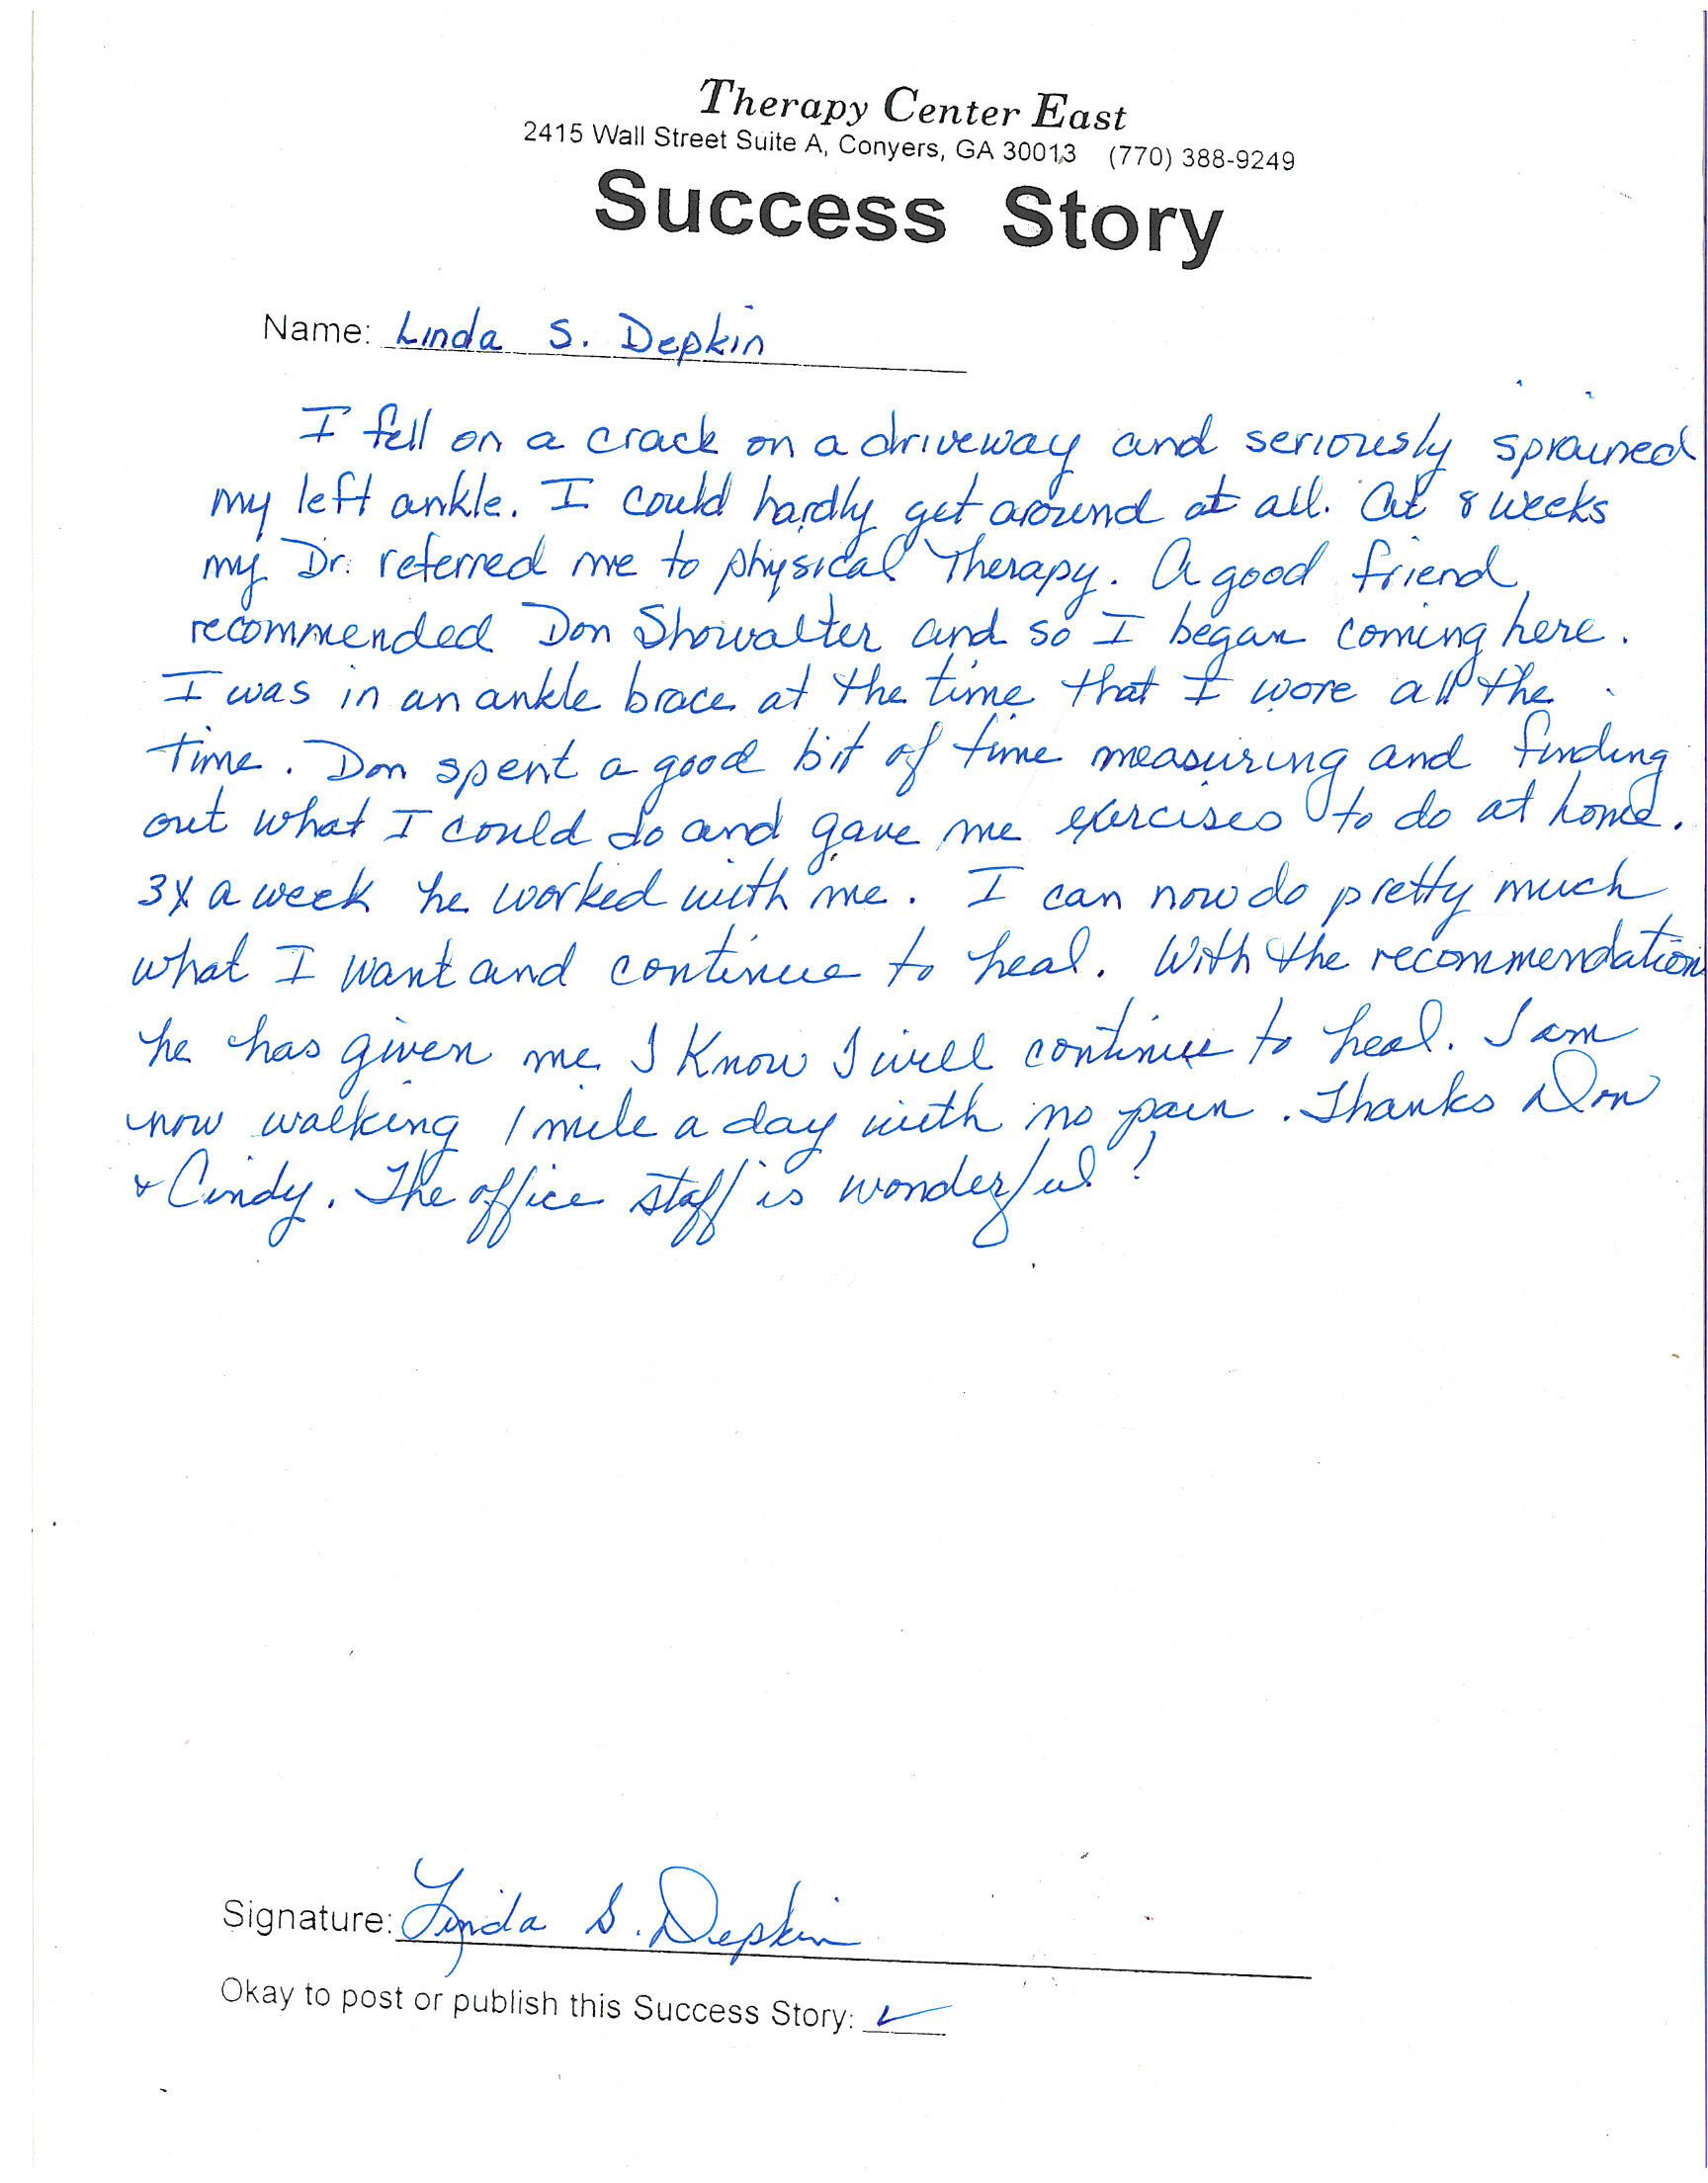 Therapy Center East
2415 Wall Street Suite A, Conyers, GA 30013 (770) 388-9249
Success Story
Name: Linda S. Depkin
I fell on a crack on a driveway and seriously sprained
my left ankle. I could hardly get around at all. At 8 weeks
my Dr. referred me to physical Therapy. A good friend
recommended Don Showalter and so I began coming here.
I was in an ankle brace at the time that I wore all the
time. Don spent a good bit of time measuring and finding
out what I could do and gave me exercises to do at home.
3X a week he worked with me. I can now do pretty much
what I want and continue to heal. With the recommendation
he has given me I know I will continue to heal. I am
now walking 1 mile a day with no pain. Thanks Don
& Cindy. The office staff is wonderful!
Signature: Linda S. Depkin
Okay to post or publish this Success Story: ✓